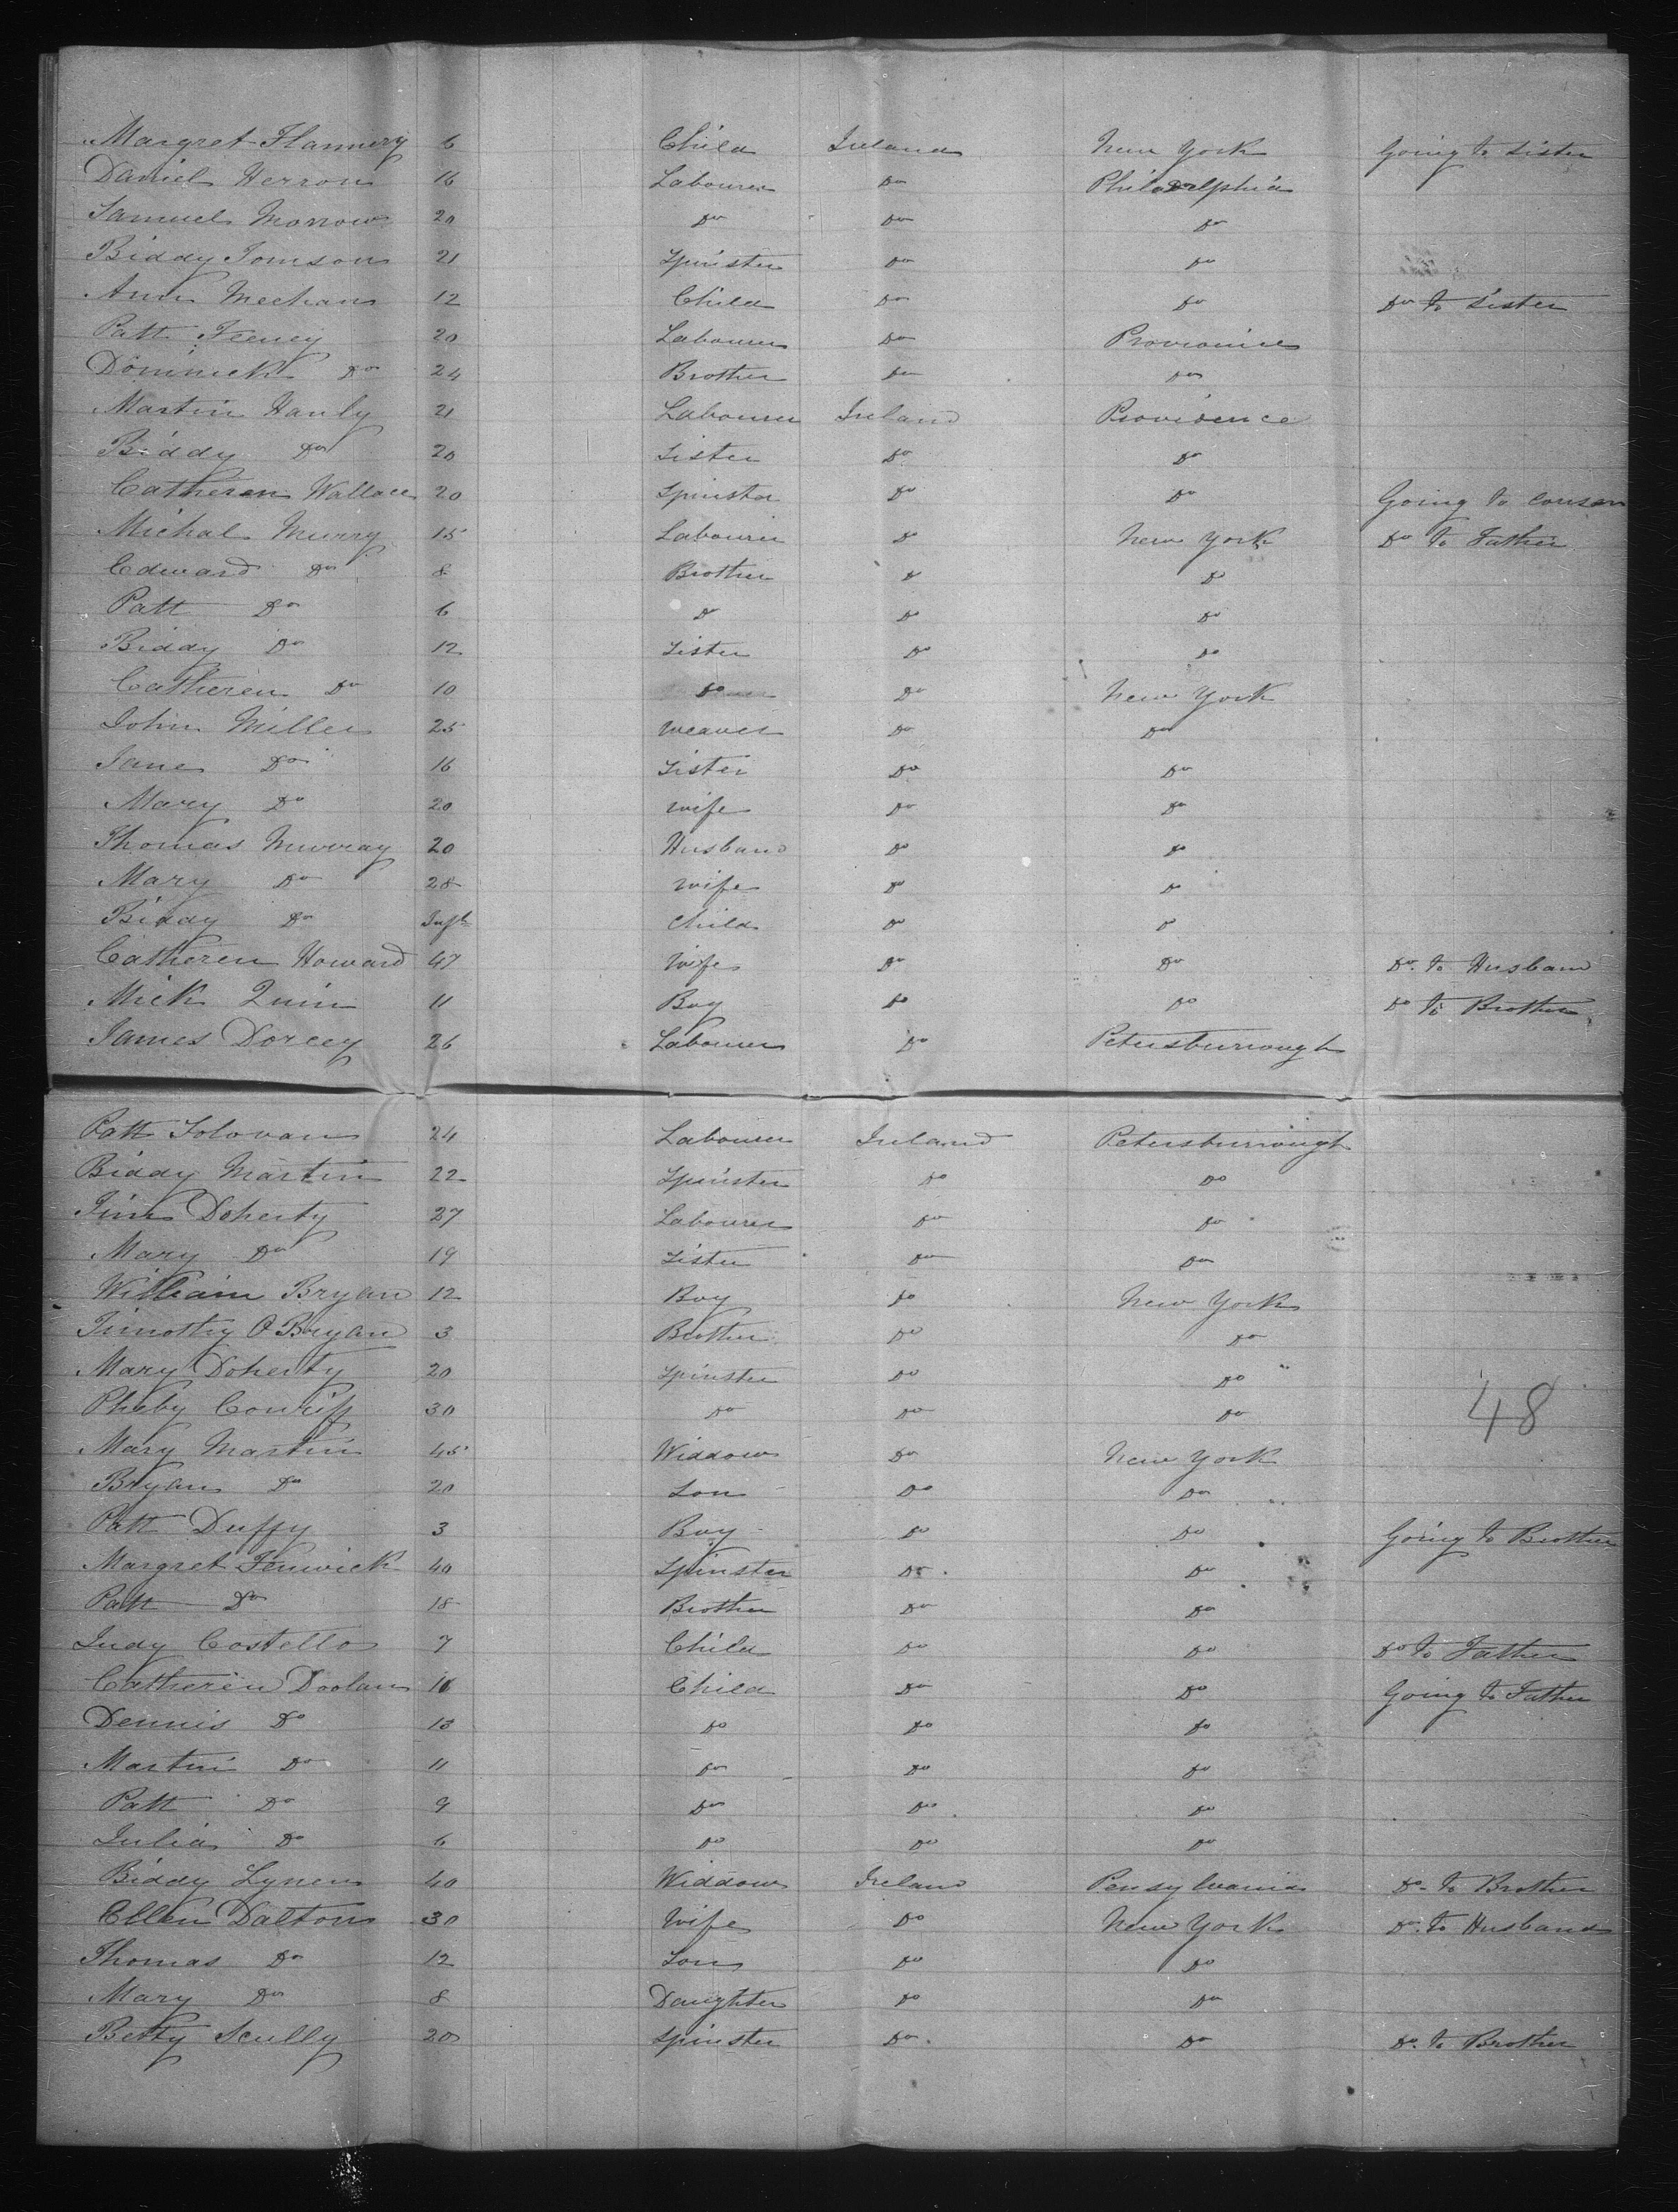 Margret Flannery 6 Child Ireland New York Going to Sister
Daniel Herron 16 Labourer Do Philadelphia
Samuel Morrow 20 Do Do Do
Biddy Tomson 21 Spinster Do Do
Ann Meehan 12 Child Do Do Do to Sister
Patt Feeney 20 Labourer Do
Dominick Do 24 Brother Do Do
Martin Hanly 21 Labourer Ireland Providence
Biddy Do 20 Sister Do Do
Catheren Wallace 20 Spinster Do Do Going to
Michal Murry 15 Labourer Do New York Do to Father
Edward Do 8 Brother Do Do
Patt Do 6 Do Do Do
Biddy Do 12 Sister Do Do
Catheren Do 10 Do Do New York
John Miller 25 Weaver Do Do
Jane Do 16 Sister Do Do
Mary Do 20 Wife Do Do
Thomas Murray 20 Husband Do Do
Mary Do 28 Wife Do Do
Biddy Do Inft Child Do Do
Catheren Howard 47 Wife Do Do Do to Husband
Mick Quin 11 Boy Do Do Do to Brother
James Dorcey 26 Labourer Do Petersburrough
Patt 24 Labourer Ireland Petersburrough
Biddy Martin 22 Spinster Do Do
Tim Doherty 27 Labourer Do Do
Mary Do 19 Sister Do Do
William Bryan 12 Boy Do New York
Timothy O Bryan 3 Brother Do Do
Mary Doherty 20 Spinster Do Do
Pheby 30 Do Do Do
48
Mary Martin 45 Widdow Do New York
Bryan Do 20 Son Do Do
Patt Duffy 3 Boy Do Do Going to Brother
Margret Fenwick 40 Spinster Do Do
Patt Do 18 Brother Do Do
Judy Costello 7 Child Do Do Do to Father
Catheren Doolan 16 Child Do Do Going to Father
Dennis Do 13 Do Do Do
Martin Do 11 Do Do Do
Patt Do 9 Do Do Do
Julia Do 6 Do Do Do
Biddy 40 Widdow Ireland Pensylvania Do to Brother
Ellen Dalton 30 Wife Do New York Do to Husband
Thomas Do 12 Son Do Do
Mary Do 8 Daughter Do Do
Betty Scully 20 Spinster Do Do Do to Brother